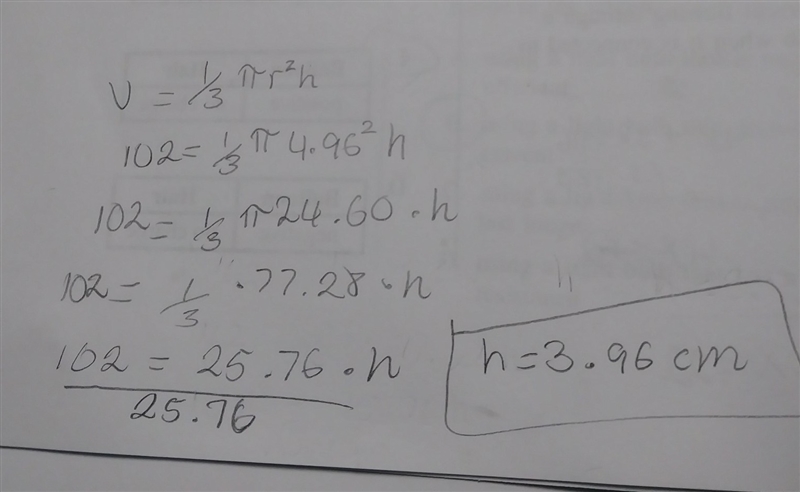 V = 1/3 πr²h
102 = 1/3 π 4.96² h
102 = 1/3 π 24.60 · h
102 = 1/3 · 77.28 · h
102 = 25.76 · h
25.76
h = 3.96 cm